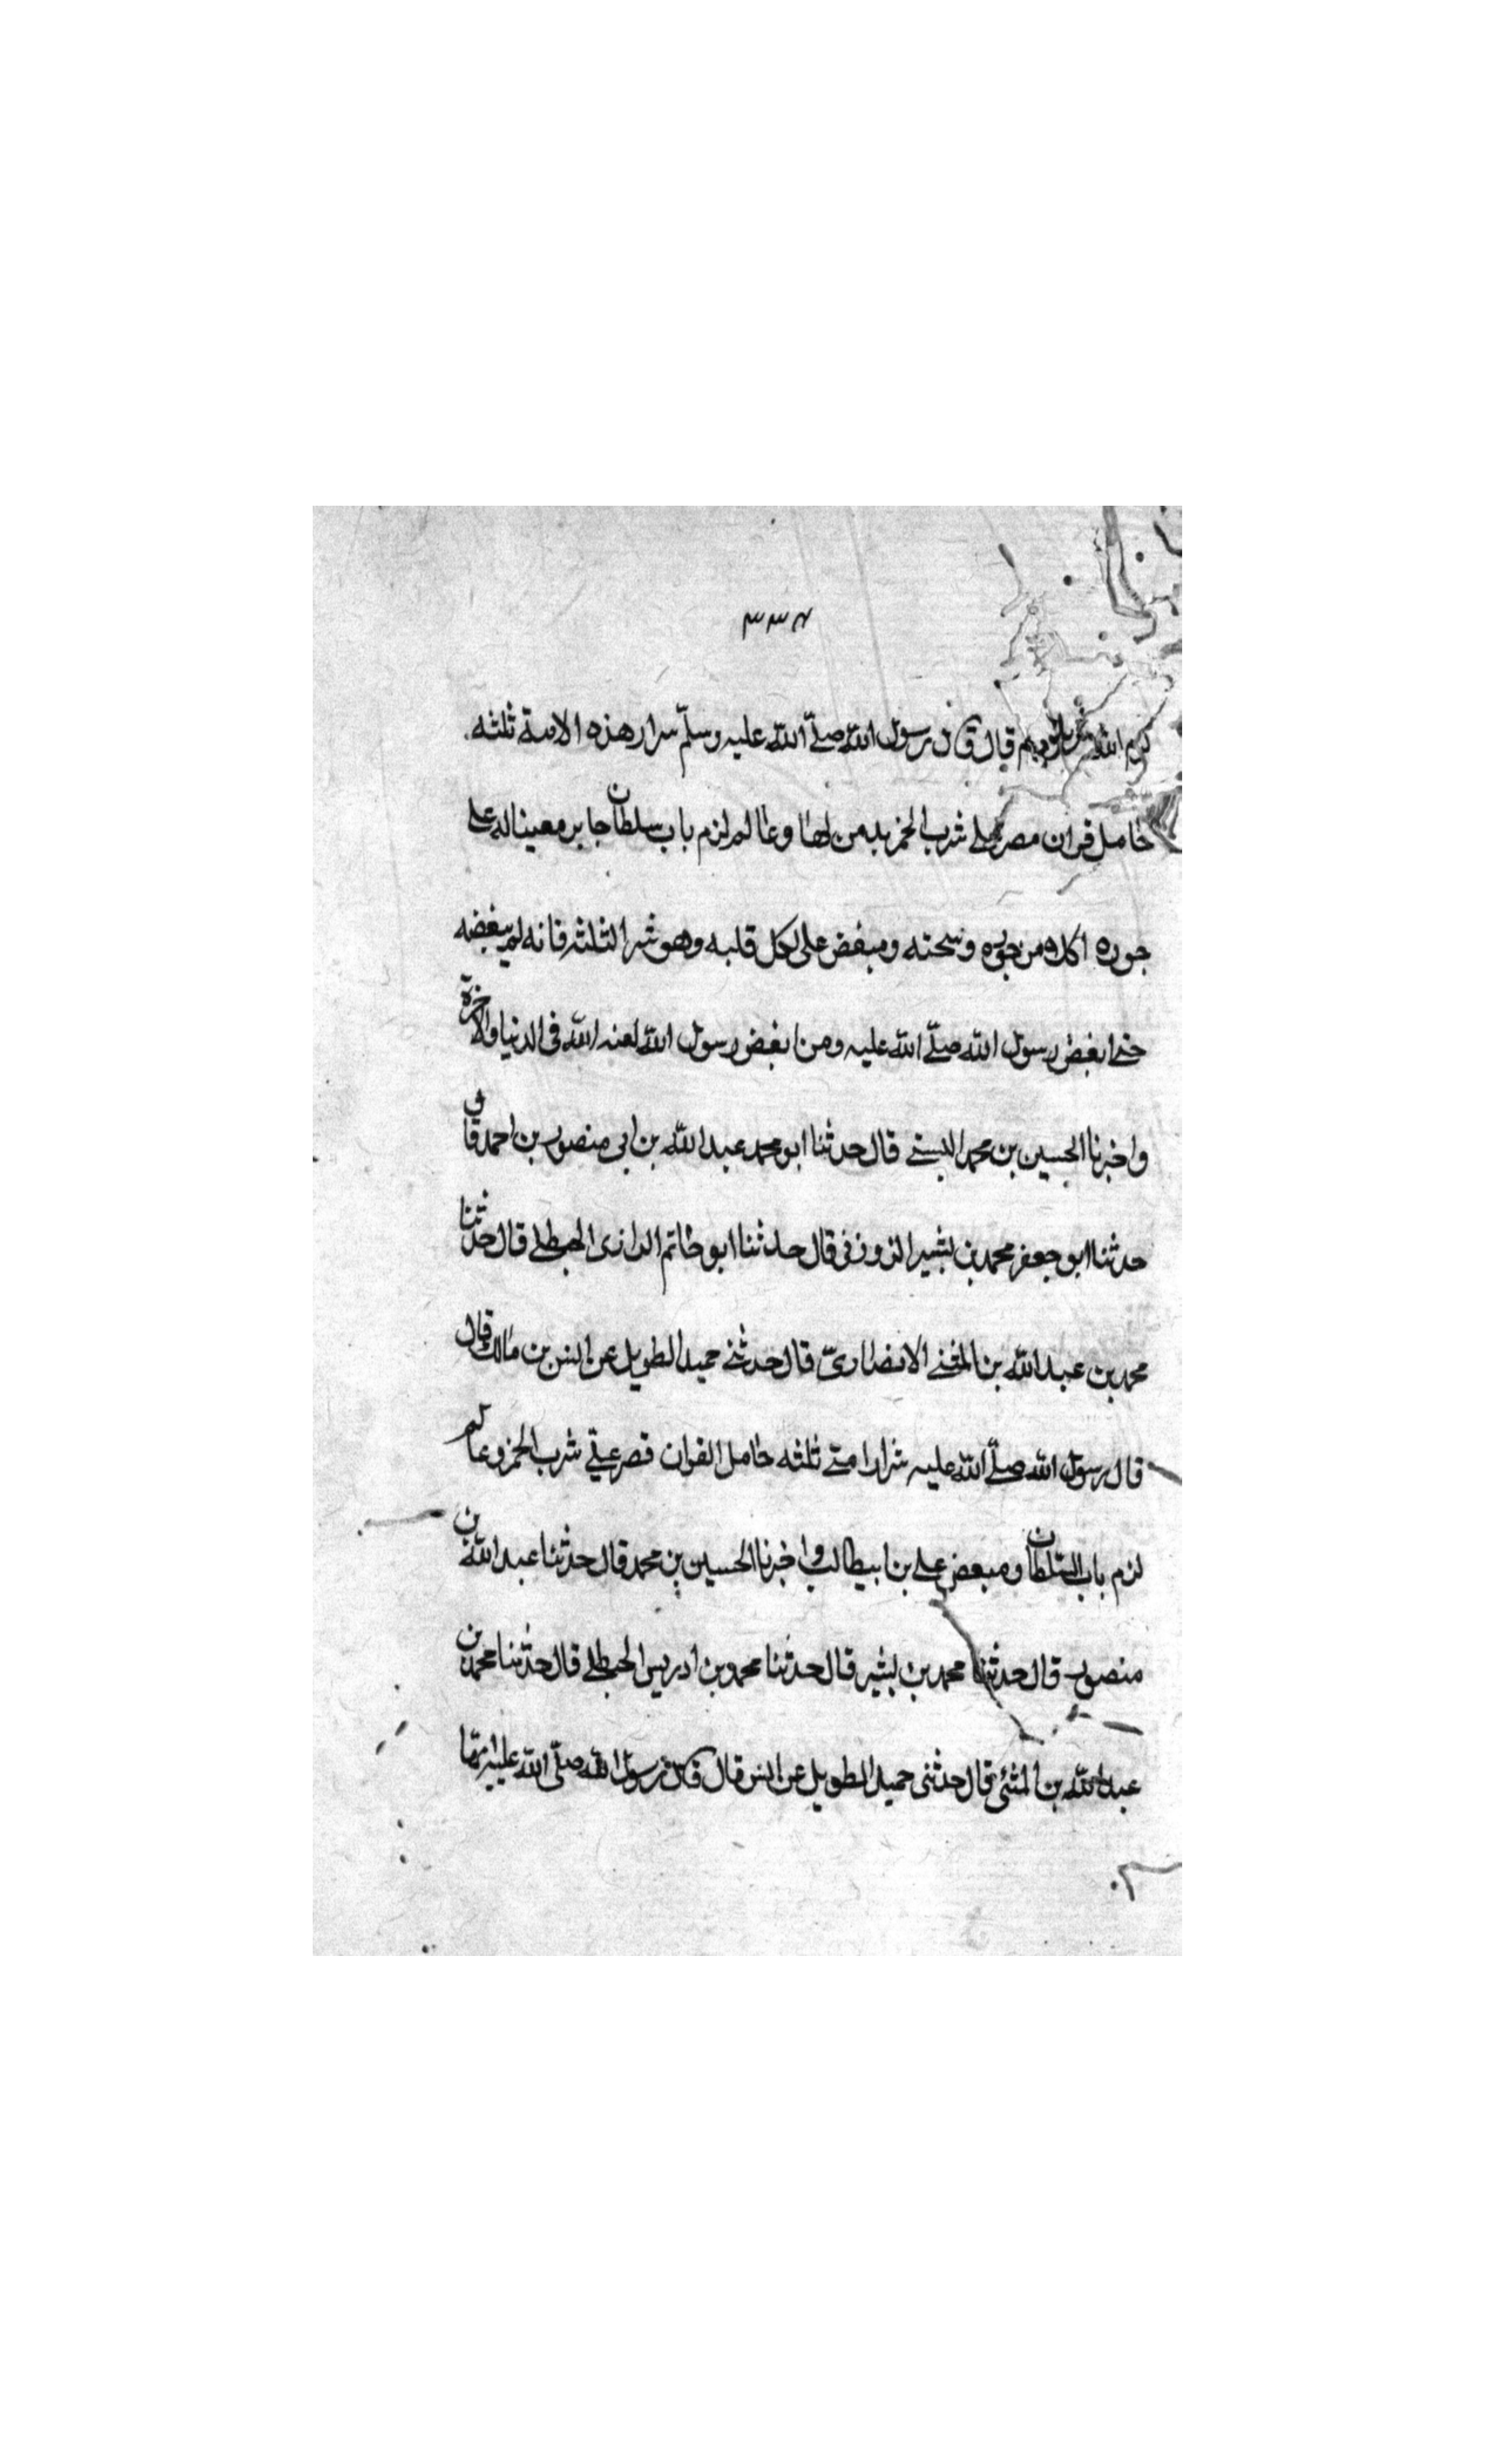 ٣٣٤
كرم الله وجوههم قال قال رسول الله صلّى الله عليه وسلّم سرار هذه الامة ثلثه
حامل قران مصر على شرب الخمر يدمن لها وعالم لزم باب سلطان جابر معينا له على
جوره اكلا من جوره وسحته ومبغض على لكل قلبه وهو شر الثلثه فانه لم يبغضه
حتى ابغض رسول الله صلّى الله عليه ومن ابغض رسول الله لعنه الله في الدنيا والاخرة
واخبرنا الحسين بن محمد البستى قال حدثنا ابو محمد عبد الله بن ابى منصور بن احمد قال
حدثنا ابو جعفر محمد بن بشير الزوزنى قال حدثنا ابو حاتم الرازى الحنطلى قال حدثنا
محمد بن عبد الله بن المثنى الانصارىّ قال حدثنى حميد الطويل عن انس بن مالك قال
قال رسول الله صلّى الله عليه شرار امتى ثلثه حامل القران مصر على شرب الخمر وعالم
لزم باب السّلطان ومبغض على بن ابيطالب واخبرنا الحسين بن محمد قال حدثنا عبد الله بن
منصور قال حدثنا محمد بن بشير قال حدثنا محمد بن ادريس الحنطلى قال حدثنا محمد بن
عبد الله بن المثنى قال حدثنى حميد الطويل عن انس قال قال رسول الله صلّى الله عليه